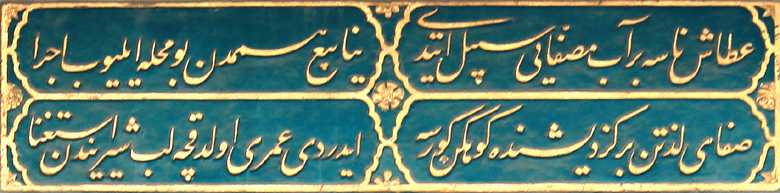 عطاش ناسه بر آب مصفایی سبیل ایتدی
ینابیع همّمدن بو محله ایلیوب اجرا
صفای لذتن بر کز دیشنده کوهکن کورسه
ایدردی عمری اولدقچه لب شیریندن استغنا